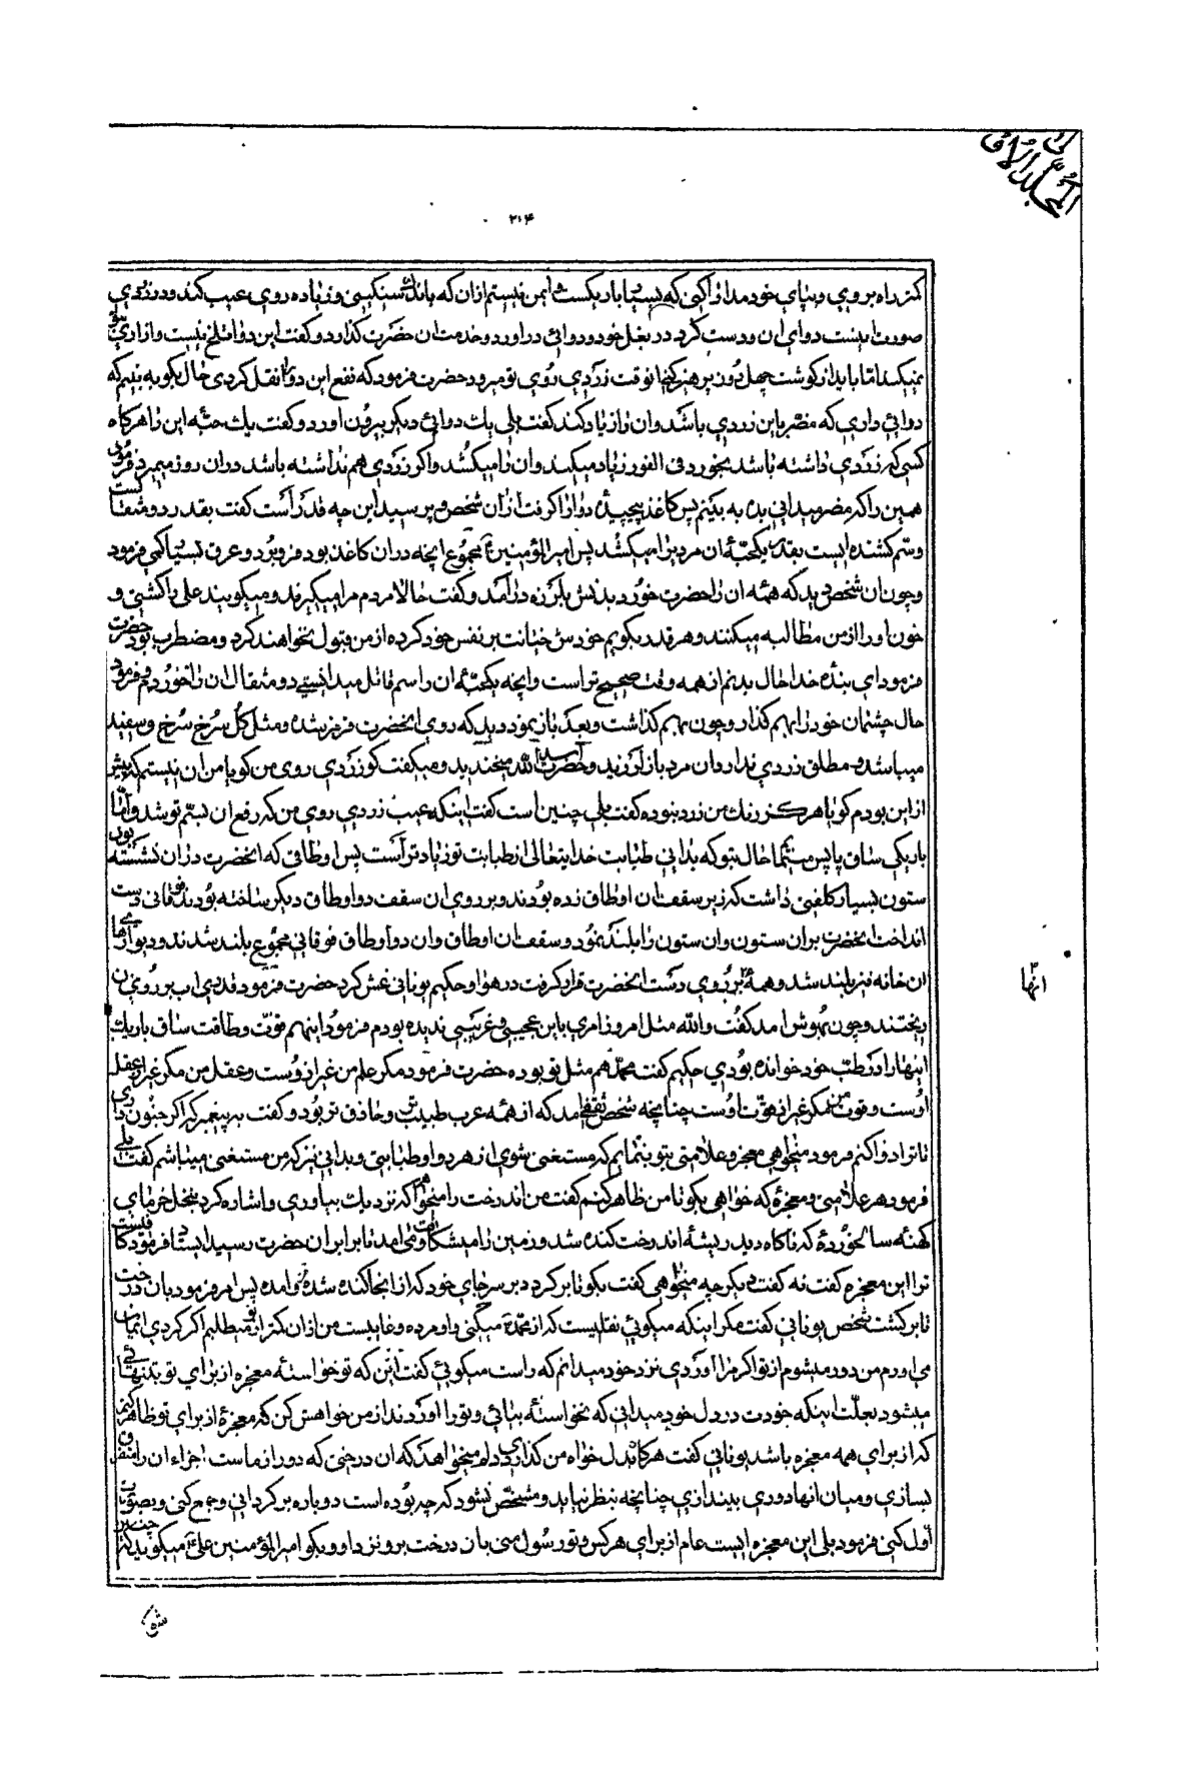 المجلد الاول
۲۰۴
کمتر راه بروی و بپای خود مدار اکنی که بسیار باریکست و ایمن نیستم از آن که باندك سنگینی و زیاده روی عیب کند و در زردی
صورت اینست دوای ان و دست کرد در بغل خود و دوائی در اورد و خدمت ان حضرت گذارد و گفت این دوا تلخ نیست و ازاری
نمیکند اما باید از گوشت چهل روز پرهیز کنی انوقت زردی روی تو میرود حضرت فرمود که نفع این دوا نقل کردی حال بگو به بینم که
دوائی داری که مضر باین زردی باشد وان را زیاد کند گفت بلی یك دوائی دیگر بیرون اورد و گفت یك حبه این را هرگاه
کسی که زردی داشته باشد بخورد فی الفور زیاد میکند وان را میکشد و اگر زردی هم نداشته باشد در ان روز میمیرد فرمود
همین را که مضر میدانی بده به بینم پس کاغذ پیچیده دوا را گرفت از ان شخص و پرسید این چه قدر است گفت بقدر دو مثقال است
و سم کشنده ایست بقدر یکحبهٔ ان مردیرا میکشد پس امیرالمؤمنین ع مجموع انچه در ان کاغذ بود فرو برد و عرق بسیاری فرمود
و چون ان شخص دید که همه ان را حضرت خورد بدنش بلرزه درآمد و گفت حالا مردم مرا میگیرند و میگویند علی را کشتی و
خون او را از من مطالبه میکنند و هر قدر بگویم خودش خیانت بر نفس خود کرده از من قبول نخواهند کرد و مضطرب بود حضرت
فرمود ای بنده خدا حال بدنم از همه وقت صحیح تر است و انچه یکحبهٔ ان را سم قاتل میدانستی دو مثقال ان را خوردم و فرمود
حال چشمان خود را بهم گذار و چون بهم گذاشت و بعد باز نمود دید که روی انحضرت قرمز شده و مثل گل سرخ سرخ و سفید
میباشد و مطلق زردی ندارد ان مرد باز لرزید و حضرت اسد الله میخندید و میگفت کو زردی روی من گویا من ان نیستم که پیش
از این بودم گویا هرگز رنك من زرد نبوده گفت بلی چنین است گفت اینکه عیب زردی روی من که رفع ان بسم تو شد و اما
باریکی ساق پا پس مینمایم حال بتو که بدانی طبابت خدایتعالی از طبابت تو زیادتر است پس اوطاقی که انحضرت در ان نشسته بود
ستون بسیار کلفتی داشت که زیر سقف ان اوطاق زده بودند و بر روی ان سقف دو اوطاق دیگر ساخته بودند فوقانی دست
انداخت انحضرت بر ان ستون وان ستون را بلند نمود و سقف ان اوطاق وان دو اوطاق فوقانی مجموع بلند شدند و دیوارهای
ان خانه نیز بلند شد و همه بر روی دست انحضرت قرار گرفت در هوا و حکیم یونانی غش کرد حضرت فرمود قدری اب بر روی ان
ریختند و چون بهوش امد گفت والله مثل امروز امری باین عجیبی و غریبی ندیده بودم فرمود اینهم قوت و طاقت ساق باریك
اینها را در طب خود خوانده بودی حکیم گفت محمد هم مثل تو بوده حضرت فرمود مگر علم من غیر از اوست و عقل من مگر غیر از عقل
اوست و قوت من مگر غیر از قوت اوست چنانچه شخص ثقفی امد که از همه عرب طبیب تر و حاذق تر بود و گفت به پیغمبر که اگر جنون داری
تا ترا دوا کنم فرمود میخواهی معجزه و علامتی بتو بنمایم که مستغنی شوی از هر دوا و طبابتی و بدانی نیز که من مستغنی میباشم گفت بلی
فرمود هر علامتی و معجزهٔ که خواهی بگو تا من ظاهر کنم گفت من اندرخت را میخواهم که نزدیك بیاوری و اشاره کرد بنخل خرمای
کهنه سالخوردهٔ که ناگاه دید ریشهٔ اندرخت کنده شد و زمین را میشکافت و می امد تا برابر ان حضرت رسید ایستاد فرمود کافیست
ترا این معجزه گفت نه گفت دیگر چه میخواهی گفت بگو تا برگردد بر سر جای خود که از انجا کنده شده و امده پس امر فرمود بان درخت
تا برگشت شخص یونانی گفت مگر اینکه میگوئی نقلیست که از محمد ص میکنی و او مرده و غایبست من از ان کمتر از تو میطلبم اگر کردی ایمان
می اورم من دور میشوم از تو اگر مرا اوردی نزد خود میدانم که راست میگوئی گفت این که تو خواستهٔ معجزه از برای تو بتنهائی
میشود بعلت اینکه خودت در دل خود میدانی که نخواستهٔ بیائی و تو را اوردند از من خواهش کن که معجزهٔ از برای تو ظاهر کنم
که از برای همه معجزه باشد یونانی گفت هرگاه بدل خواه من گذاری دلم میخواهد که ان درختی که دور از ماست اجزاء ان را متفرق
بسازی و میان انها دوری بیندازی چنانچه بنظر نیاید و مشخص نشود که چه بوده است دوباره برگردانی و جمع کنی و بصورت
اول کنی فرمود بلی این معجزه ایست عام از برای هر کس و تو رسول منی بان درخت برو نزد او و بگو امیرالمؤمنین علی ع میگوید که
انها